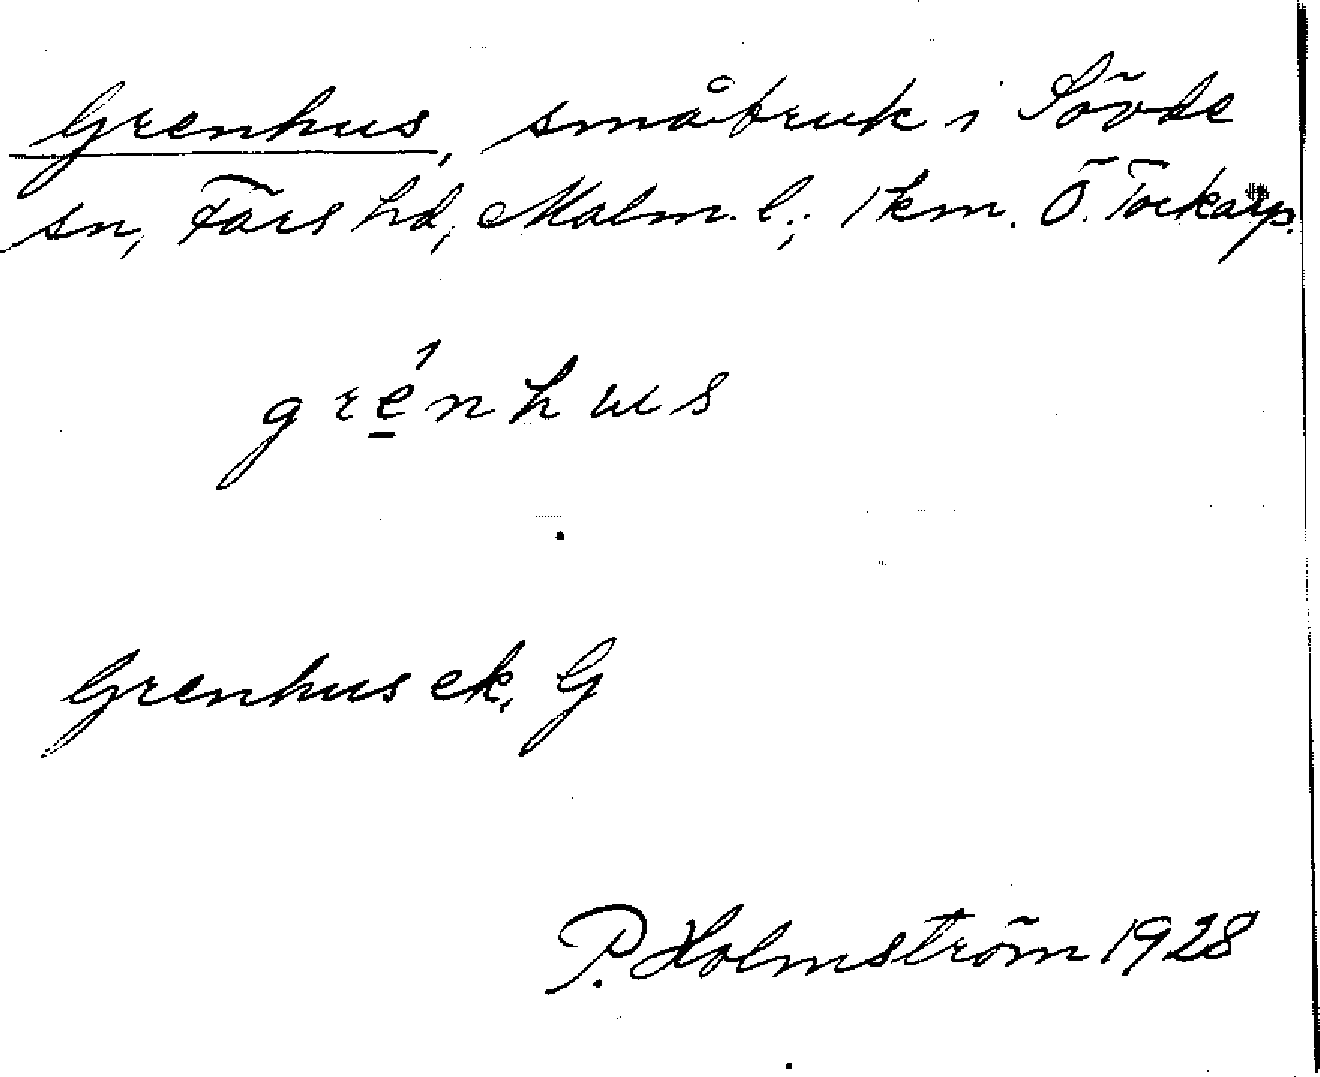 Grenhus, småbruk i Sövde
sn, Färs hd, Malm. l.; 1 km. Ö. Tockarp.
grénhus
Grenhus ek. G
P. Holmström 1928